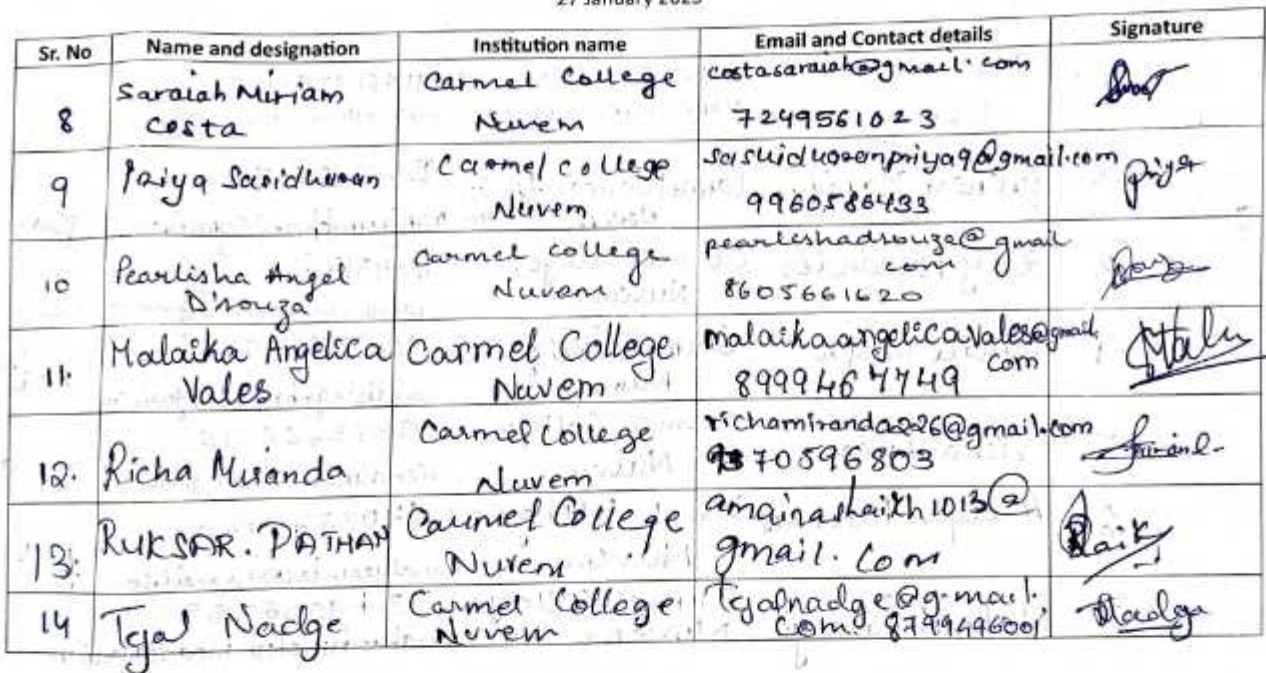 27 January 2023
Sr. No Name and designation Institution name Email and Contact details Signature
8 Saraiah Miriam Costa Carmel College Nuvem costasaraiah@gmail.com 7249561023
9 Priya Sasidharan Carmel college Nuvem sashidharanpriya9@gmail.com 9960586433 Priya
10 Pearlisha Angel D'souza Carmel college Nuvem pearlishadsouza@gmail com 8605661620
11. Malaika Angelica Vales Carmel College Nuvem malaikaangelicavales@gmail. com 8999467749
12. Richa Miranda Carmel College Nuvem richamiranda226@gmail.com 70596803
13. RUKSAR. PATHAN Carmel College Nuvem amainashaikh1013@ gmail. com
14 Tejal Nadge Carmel College Nuvem Tejalnadge@g.mail. com. 8799496001 Nadge